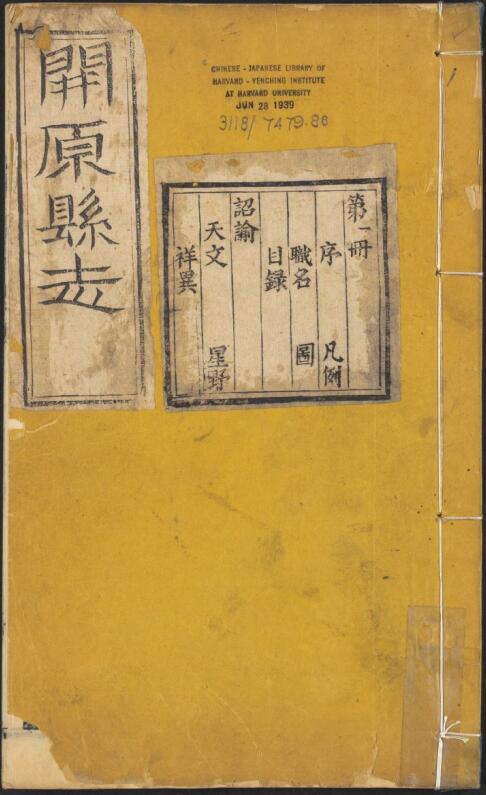 開原縣志
CHINESE - JAPANESE LIBRARY OF
HARVARD - YENCHING INSTITUTE
AT HARVARD UNIVERSITY
JUN 28 1939
3118/7479.86
第一冊
序 凡例
職名 圖
目録
詔諭
天文 星野
祥異